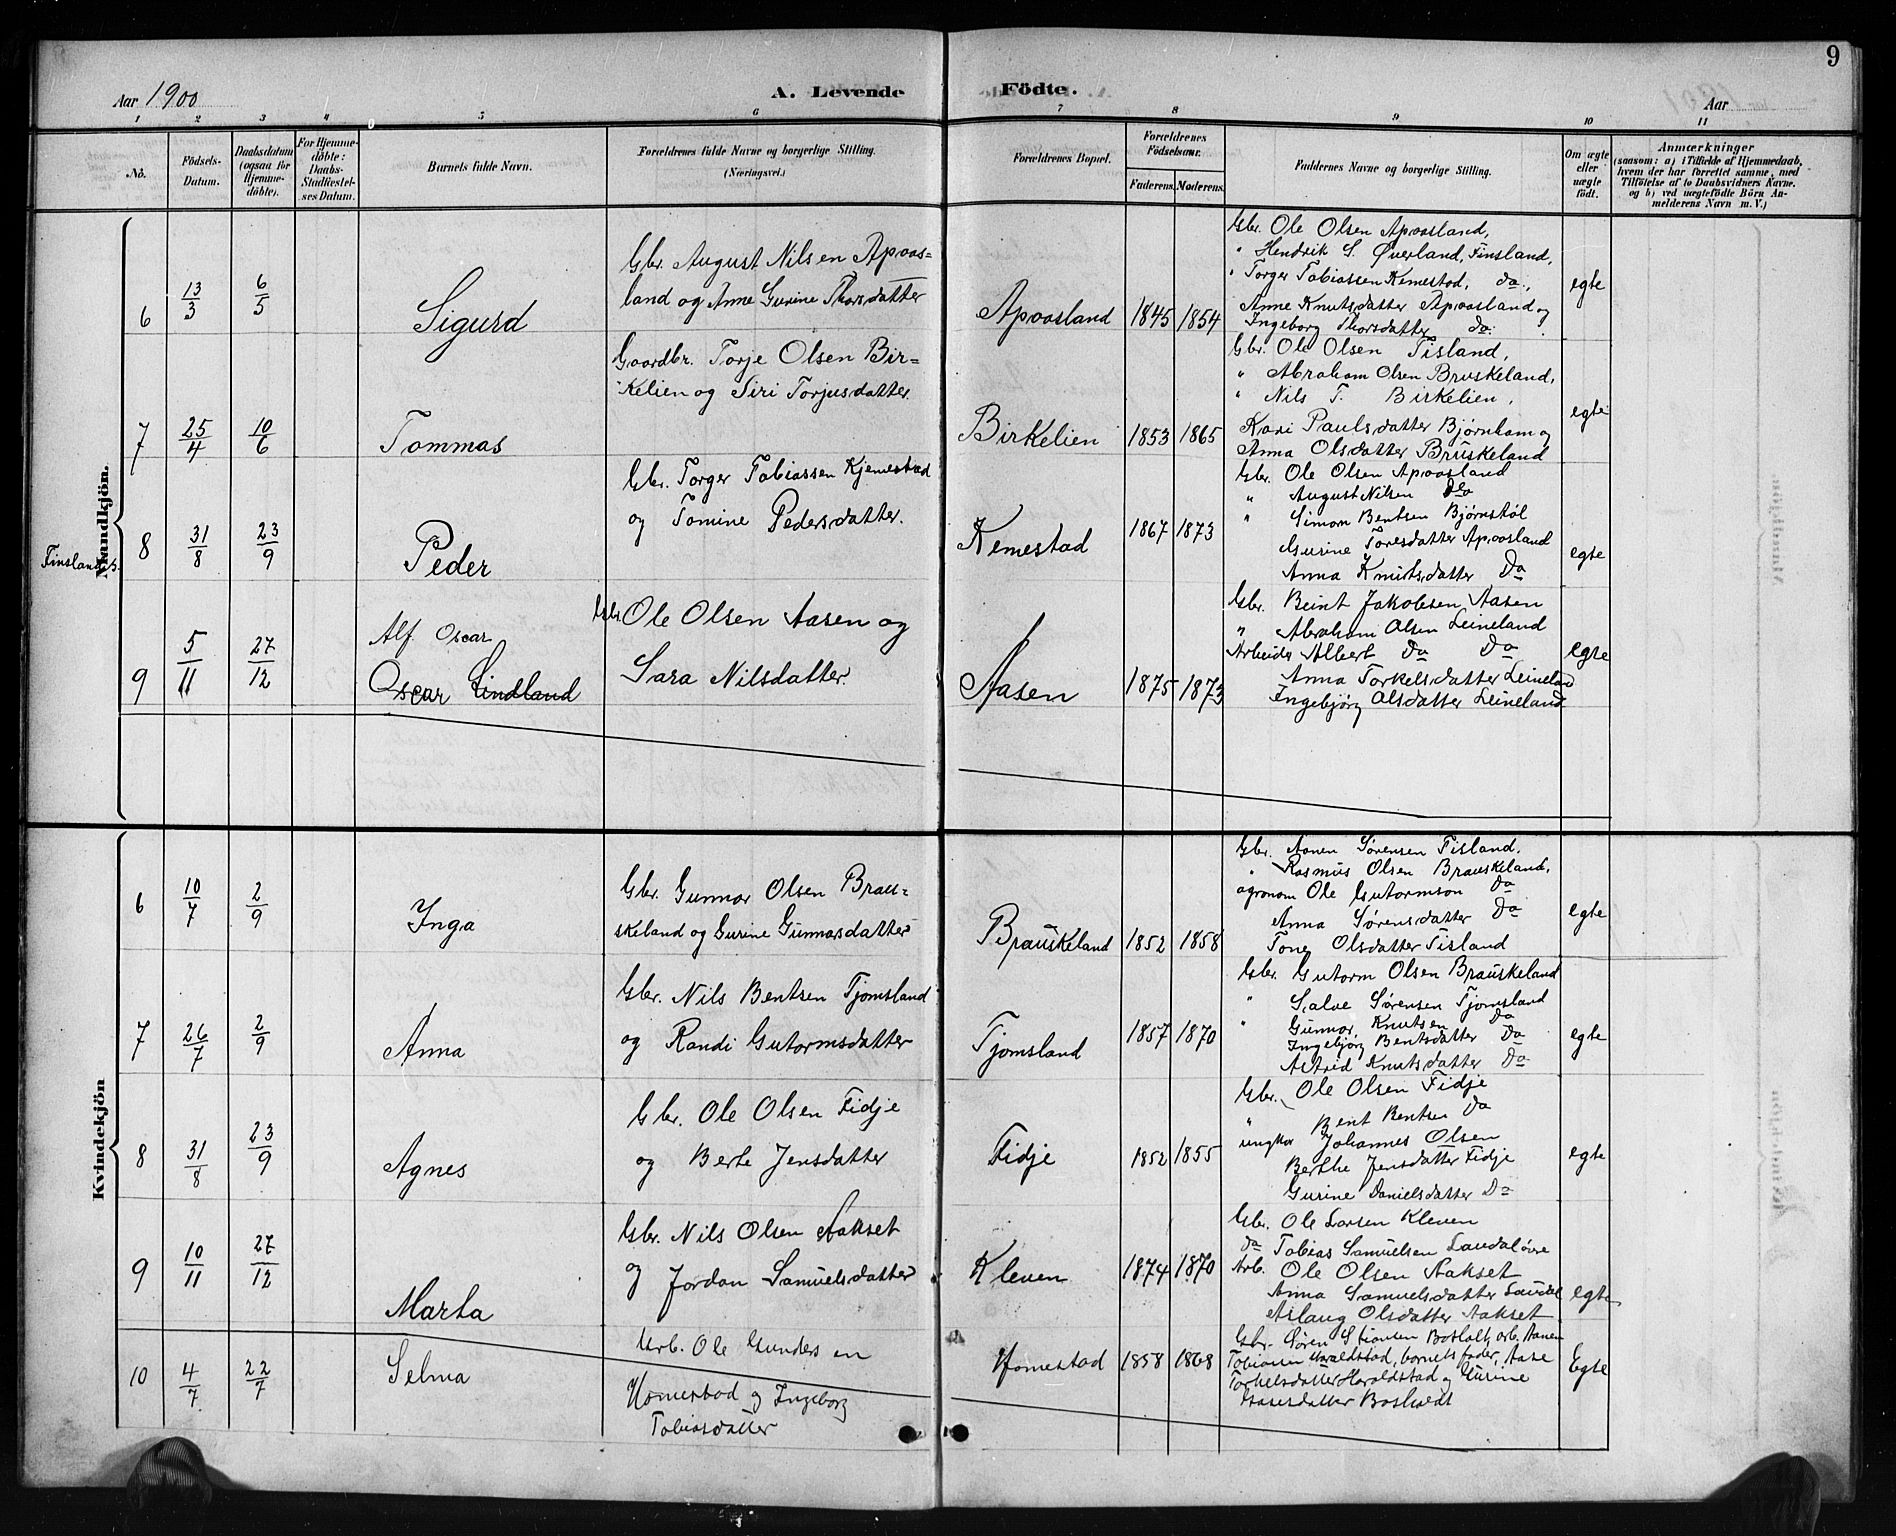 9
Aar 1900
A. Levende
Födte.
Aar
1 2 3 4 5 6 7 8 9 10 11
No.
Födsels-Datum.
Daabsdatum (ogsaa for Hjemme-döbte).
For Hjemme-döbte: Daabs-Stadfæstel-ses Datum.
Barnets fulde Navn.
Forældrenes fulde Navne og borgerlige Stilling.
(Næringsvei.)
Forældrenes Bopæl.
Forældrenes Födselsaar.
Faderens. Moderens.
Faddernes Navne og borgerlige Stilling.
Om ægte eller uægte født.
Anmærkninger
(saasom: a) i Tilfælde af Hjemmedaab,
hvem der har forrettet samme, med
Tilföielse af to Daabsvidners Navne.
og b) ved uægtefödte Börn An-
melderens Navn m. V.)
Mandkjön.
Finsland s.
6 13/3 6/5 Sigurd
Gbr. August Nilsen Apaas-
land og Anne Gurine Thorsdatter
Apaasland 1845 1854
Gbr. Ole Olsen Apaasland,
" Hendrik S. Øverland, Finsland,
" Torger Tobiassen Kemestad, do.,
Anne Knutsdatter Apaasland og
Ingeborg Thorsdatter do.
egte
7 25/4 10/6 Tommas
Gaardbr. Torje Olsen Bir-
kelien og Siri Torjusdatter
Birkelien 1853 1865
Gbr. Ole Olsen Tisland,
" Abraham Olsen Bruskeland,
" Nils T. Birkelien,
Kari Paulsdatter Bjørnham og
Anna Olsdatter Bruskeland
egte
8 31/8 23/9 Peder
Gbr. Torger Tobiassen Kjemestad
og Tomine Pedersdatter.
Kemestad 1867 1873
Gbr. Ole Olsen Apaasland
" August Nilsen Do
" Simon Bentsen Bjørnstøl
Gurine Toresdatter Apaasland
Anna Knutsdatter Do
egte
9 5/11 27/12 Alf Oscar
Oscar Lindland
Gbr. Ole Olsen Aasen og
Sara Nilsdatter.
Aasen 1875 1873
Gbr. Beint Jakobsen Aasen
" Abraham Olsen Leineland
Arbeider Albert Do Do
Anna Torkelsdatter Leineland
Ingebjørg Olsdatter Leineland
egte
Kvindekjön
6 10/7 2/9 Inga
Gbr. Gunnar Olsen Brau-
skeland og Gurine Gunnarsdatter
Brauskeland 1852 1858
Gbr. Aanen Sørensen Tisland.
" Rasmus Olsen Brauskeland,
agronom Ole Gutormson Do
Anna Sørensdatter Do
Tone Olsdatter Tisland
egte
7 26/7 2/9 Anna
Gbr. Nils Bentsen Tjomsland
og Randi Gutormsdatter
Tjomsland 1857 1870
Gbr. Gutorm Olsen Brauskeland
" Salve Sørensen Tjomsland
" Gunnar Knutsen Do
Ingebjørg Bentsdatter Do
Astrid Knutsdatter Do
egte
8 31/8 23/9 Agnes
Gbr. Ole Olsen Fidje
og Berte Jensdatter
Fidje 1852 1855
Gbr. Ole Olsen Fidje
" Bent Bentsen Do
ungkar Johannes Olsen
Berthe Jensdatter Fidje
Gurine Danielsdatter Do
egte
9 10/11 27/12 Marta
Gbr. Nils Olsen Aakset
og Jordan Samuelsdatter
Kleven 1874 1870
Gbr. Ole Larsen Kleven
do Tobias Samuelsen
Arb. Ole Olsen Aakset
Anna Samuelsdatter Laudal
Aslaug Olsdatter Aakset
egte
10 4/7 22/7 Selma
Arb. Ole Gundersen
Homestad og Ingeborg
Tobiasdatter
Homestad 1858 1868
Gbr. Søren arb. Aanen
Tobiasen Haraldstad, barnets fader, Aase
Torkelsdatter Haraldstad og Gurine
Egte